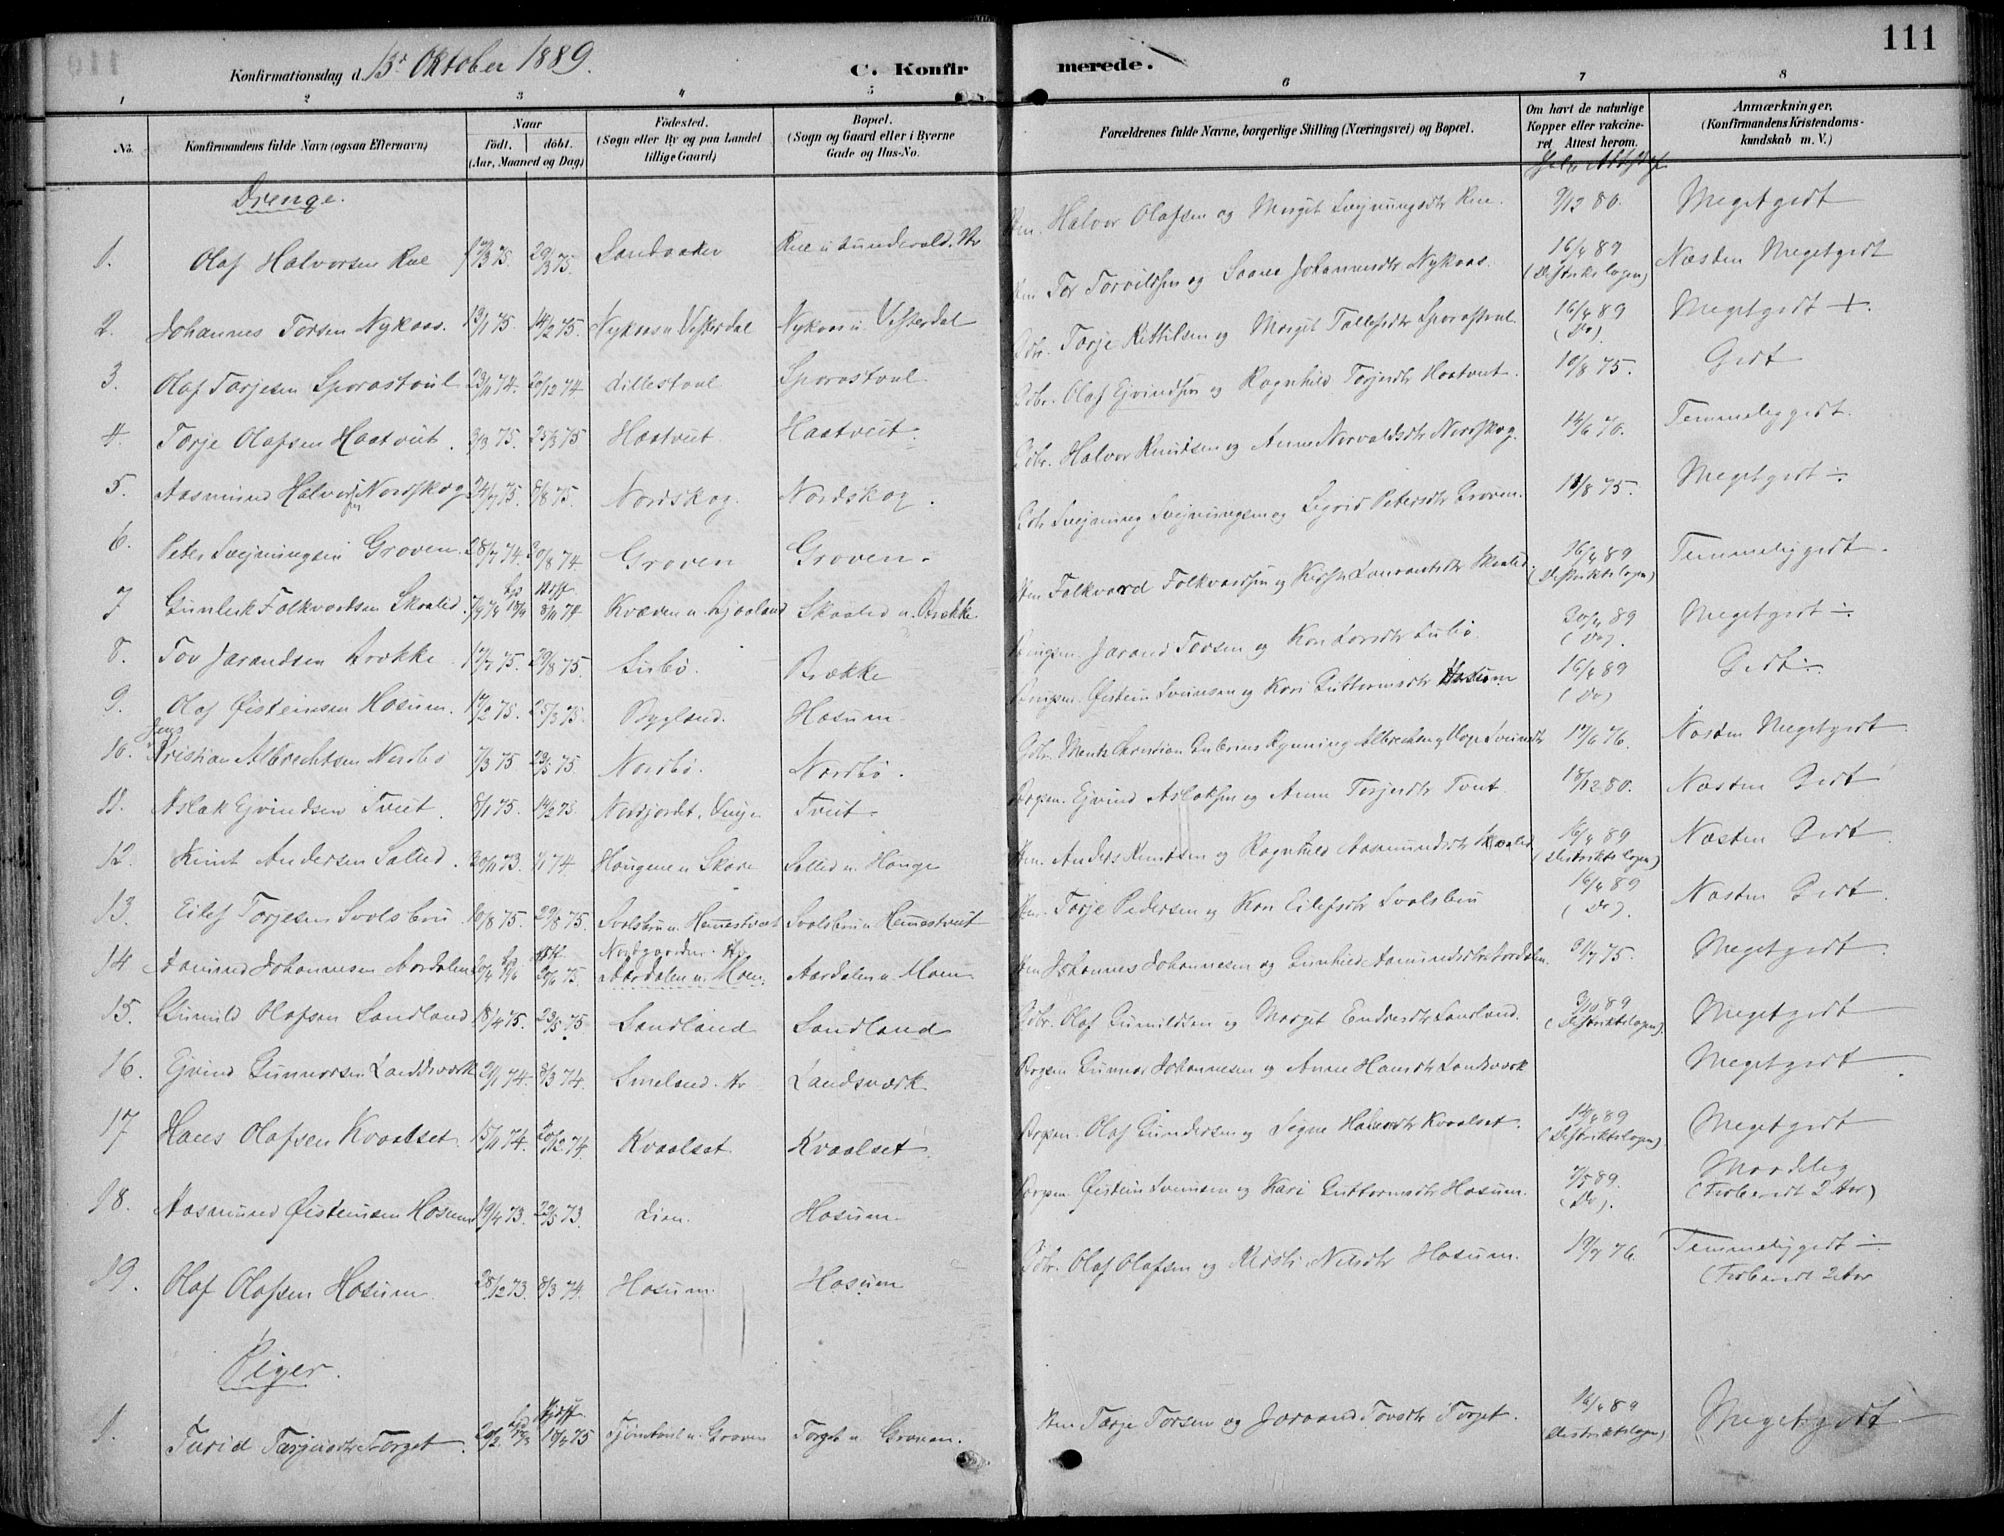 111
Konfirmationsdag d. 13de Oktober 1889.
C. Konfirmerede.
1 2 3 4 5 6 7 8
No.
Konfirmandens fulde Navn (ogsaa Efternavn)
Naar
födt. döbt.
(Aar, Maaned og Dag)
Födested.
(Sogn eller By og paa Landet
tillige Gaard)
Bopæl.
(Sogn og Gaard eller i Byerne
Gade og Hus-No.
Forældrenes fulde Navne, borgerlige Stilling (Næringsvei) og Bopæl.
Om havt de naturlige
Kopper eller vakcine-
ret Attest herom.
Anmærkninger.
(Konfirmandens Kristendoms-
kundskab m. V.)
Drenge.
1. Olaf Halvorsen Rue 17/3 75. 29/3 75. Sandaaker Halvor Olafsen og Margit Svejnungsdtr Rue. 9/12 80. Meget godt
2. Johannes Torsen Nykaas. 13/1 75. 14/2 75. Nykaas u. Vesterdal Nykaas u. Vesterdal Tor Torvildsen og Johannesdtr Nykaas. 16/4 89 (Distriktslægen) Næsten Meget godt
3. Olaf Tarjesen Sporastoul 23/11 74. 20/12 74 Lillestoul Sporastoul Gdbr. Tarje Kittilsen og Margit Tallefsdtr Sporastoul 16/4 89 (Do). Meget godt +.
4. Tarje Olafsen Haatveit. 3/3 75. 25/3 75 Haatveit Haatveit. Gdbr. Olaf Ejvindsen og Ragnhild Tarjesdtr Haatveit. 10/8 75. Godt
5. Aasmund Halvorsen Nordskog 24/7 75. 8/8 75. Nordskog. Nordskog. Gdbr. Halvor Knudsen og Anne Norvaldsdtr Nordskog. 14/6 76. Temmelig godt.
6. Peter Svejnungsen Groven. 28/7 74. 30/8 74 Groven Groven. Gdbr Svejnung Svejnungsen og Sigrid Petersdtr Groven. 11/8 75. Meget godt ÷
7 Gunleik Folkvardsen Skaalid. 8/11 74 Kvæven u. Ljosland Skaalid u. Brække. Folkvard Folkvardsen og 16/4 89 (Distriktslægen) Temmelig godt.
8. Tov Jarandsen Brække 17/7 75. 29/8 75. Lusbø. Brække Jarand Torsen og 30/4 89 (Do) Meget godt ÷
9. Olaf Øisteinsen Hosum. 17/2 75. 25/3 75. Bygland. Hosum. Øistein Sveinsen og Kari Guttormsdtr Hosum 16/4 89 (Do) Godt ÷
10. Jens Kristian Albrechtsen Nordbø 7/3 75 23/5 75. Nordbø. Nordbø. Gdbr. 17/6 76. Næsten Meget godt.
11. Aslak Ejvindsen Tveit. 8/1 75. 14/2 75 Nordjordet. Tveit. Ejvind Aslaksen og Anne Torjesdtr Tveit 18/12 80. Næsten Godt
12. Knut Andersen Sollid. 20/11 73. 1/1 74. Haugene u. Skare Sollid u. Hauge Anders Knudsen og Ragnhild Aasmundsdtr 16/4 89 (Distriktslægen) Næsten Godt
13. Eilef Torjesen Svolsbru 10/8 75. 29/8 75. Svolsbru u. Hemmestveit Svolsbru u. Hemmestveit Torje Pedersen og Kari Eilefsdtr Svolsbru 16/4 89 (Do). Næsten Godt.
14 Aamund Johannesen Aardalen 20/6 75. Nordgaarden Aardalen u. Moen. Aardalen u. Moen Johannes Johannesen og Gunhild Aamundsdtr Aardalen 9/7 75. Meget godt.
15. Gunuld Olafsen Sandland 18/4 75. 23/5 75. Sandland Sandland Gdbr. Olaf Gunuldsen og Margit Endresdtr Sandland. 3/10 89 (Distriktslægen). Meget godt
16. Ejvind Gunnarsen Landsværk 2/1 74. 8/3 74. Smeland. Landsværk Gunnar Johannesen og Anne Hansdtr Landsværk Meget godt
17 Hans Olafsen Kvaalset. 15/11 74. 20/12 74. Kvaalset Kvaalset. Olaf Gundersen og Signe Halvorsdtr Kvaalset. 14/4 89 (Distriktslægen). Meget godt
18. Aasmund Øisteinsen Hosum 19/4 73. 22/5 73. Lien. Hosum. Øistein Sveinsen og Kari Guttormsdtr Hosum. 7/5 89. (Do). Maadelig (Forberedt 2 Aar)
19. Olaf Olafsen Hosum. 28/12 73. 8/3 74. Hosum. Hosum Gdbr. Olaf Olafsen og Kirsti Nilsdtr Hosum. 19/7 76. Temmelig godt ÷ (Forberedt 2 Aar
Piger.
1. Turid Tarjesdtr Torget. u. Groven Torget u. Groven. Tarje Torsen og Joraand Tovsdtr Torget. 16/4 89 (Distriktslægen) Meget godt